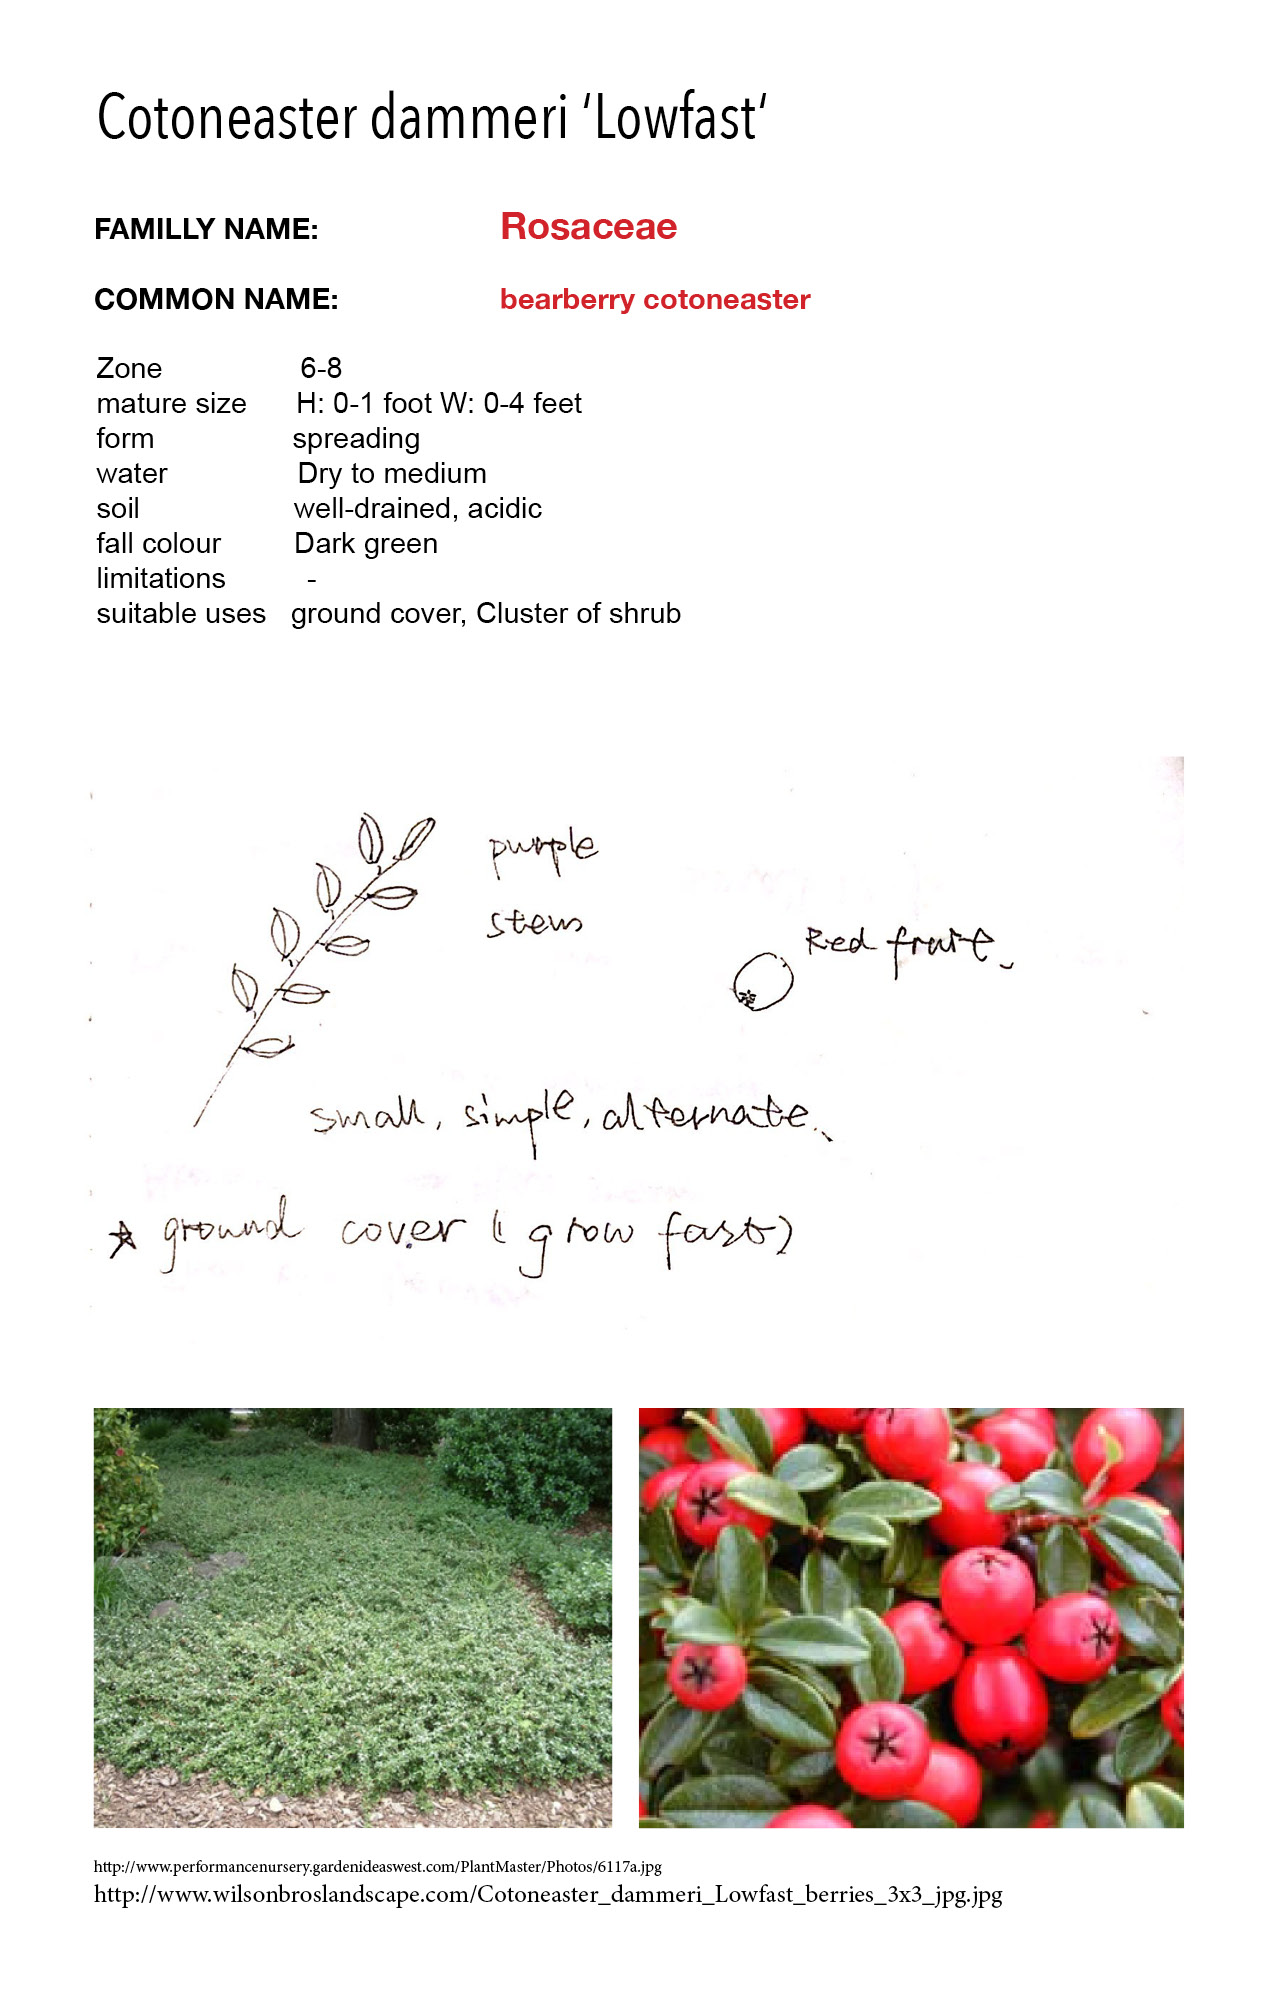 Cotoneaster dammeri ‘Lowfast‘
FAMILLY NAME: Rosaceae
COMMON NAME: bearberry cotoneaster
Zone 6-8
mature size H: 0-1 foot W: 0-4 feet
form spreading
water Dry to medium
soil well-drained, acidic
fall colour Dark green
limitations -
suitable uses ground cover, Cluster of shrub
purple
stem
Red fruit.
small, simple, alternate.
☆ ground cover (grow fast)
http://www.performancenursery.gardenideaswest.com/PlantMaster/Photos/6117a.jpg
http://www.wilsonbroslandscape.com/Cotoneaster_dammeri_Lowfast_berries_3x3_jpg.jpg